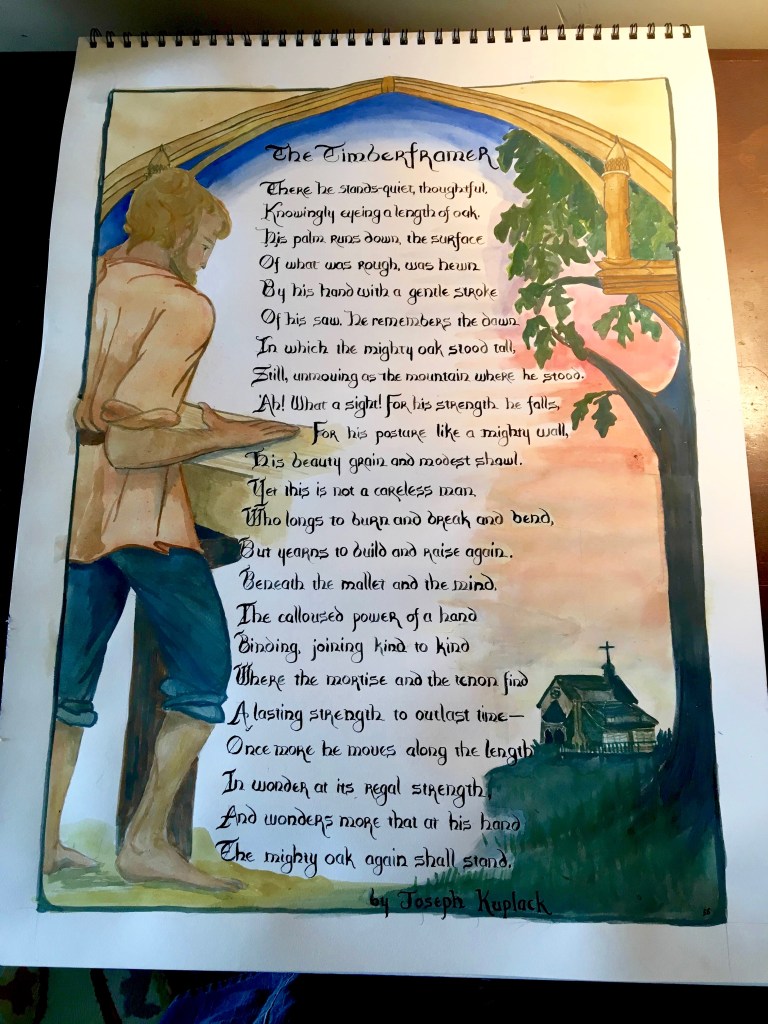 The Timberframer
There he stands-quiet, thoughtful,
Knowingly eyeing a length of oak.
His palm runs down, the surface
Of what was rough, was hewn
By his hand with a gentle stroke
Of his saw. He remembers the dawn
In which the mighty oak stood tall;
Still, unmoving as the mountain where he stood.
Ah! What a sight! For his strength he falls,
For his posture like a mighty wall,
His beauty grain and modest shawl.
Yet this is not a careless man
Who longs to burn and break and bend,
But yearns to build and raise again.
Beneath the mallet and the mind,
The calloused power of a hand
Binding, joining kind to kind
Where the mortise and the tenon find
A lasting strength to outlast time—
Once more he moves along the length
In wonder at its regal strength,
And wonders more that at his hand
The mighty oak again shall stand.
by Joseph Kuplack